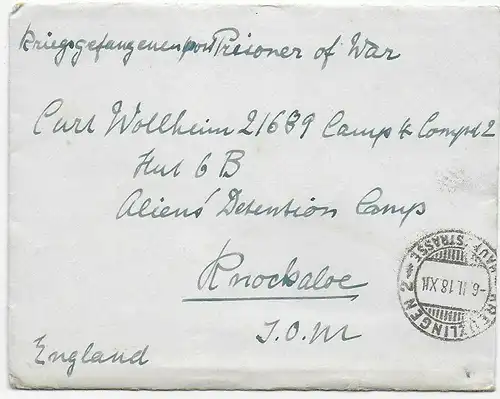 Kriegsgefangenenpost Prisoner of War
Curt Wollheim 21689 Camp 4 Compd 2
Hut 6 B
Aliens' Detention Camp
Knockaloe
I.O.M
England
KREUZLINGEN 2
HAUPTSTRASSE
-6.II.18.XII